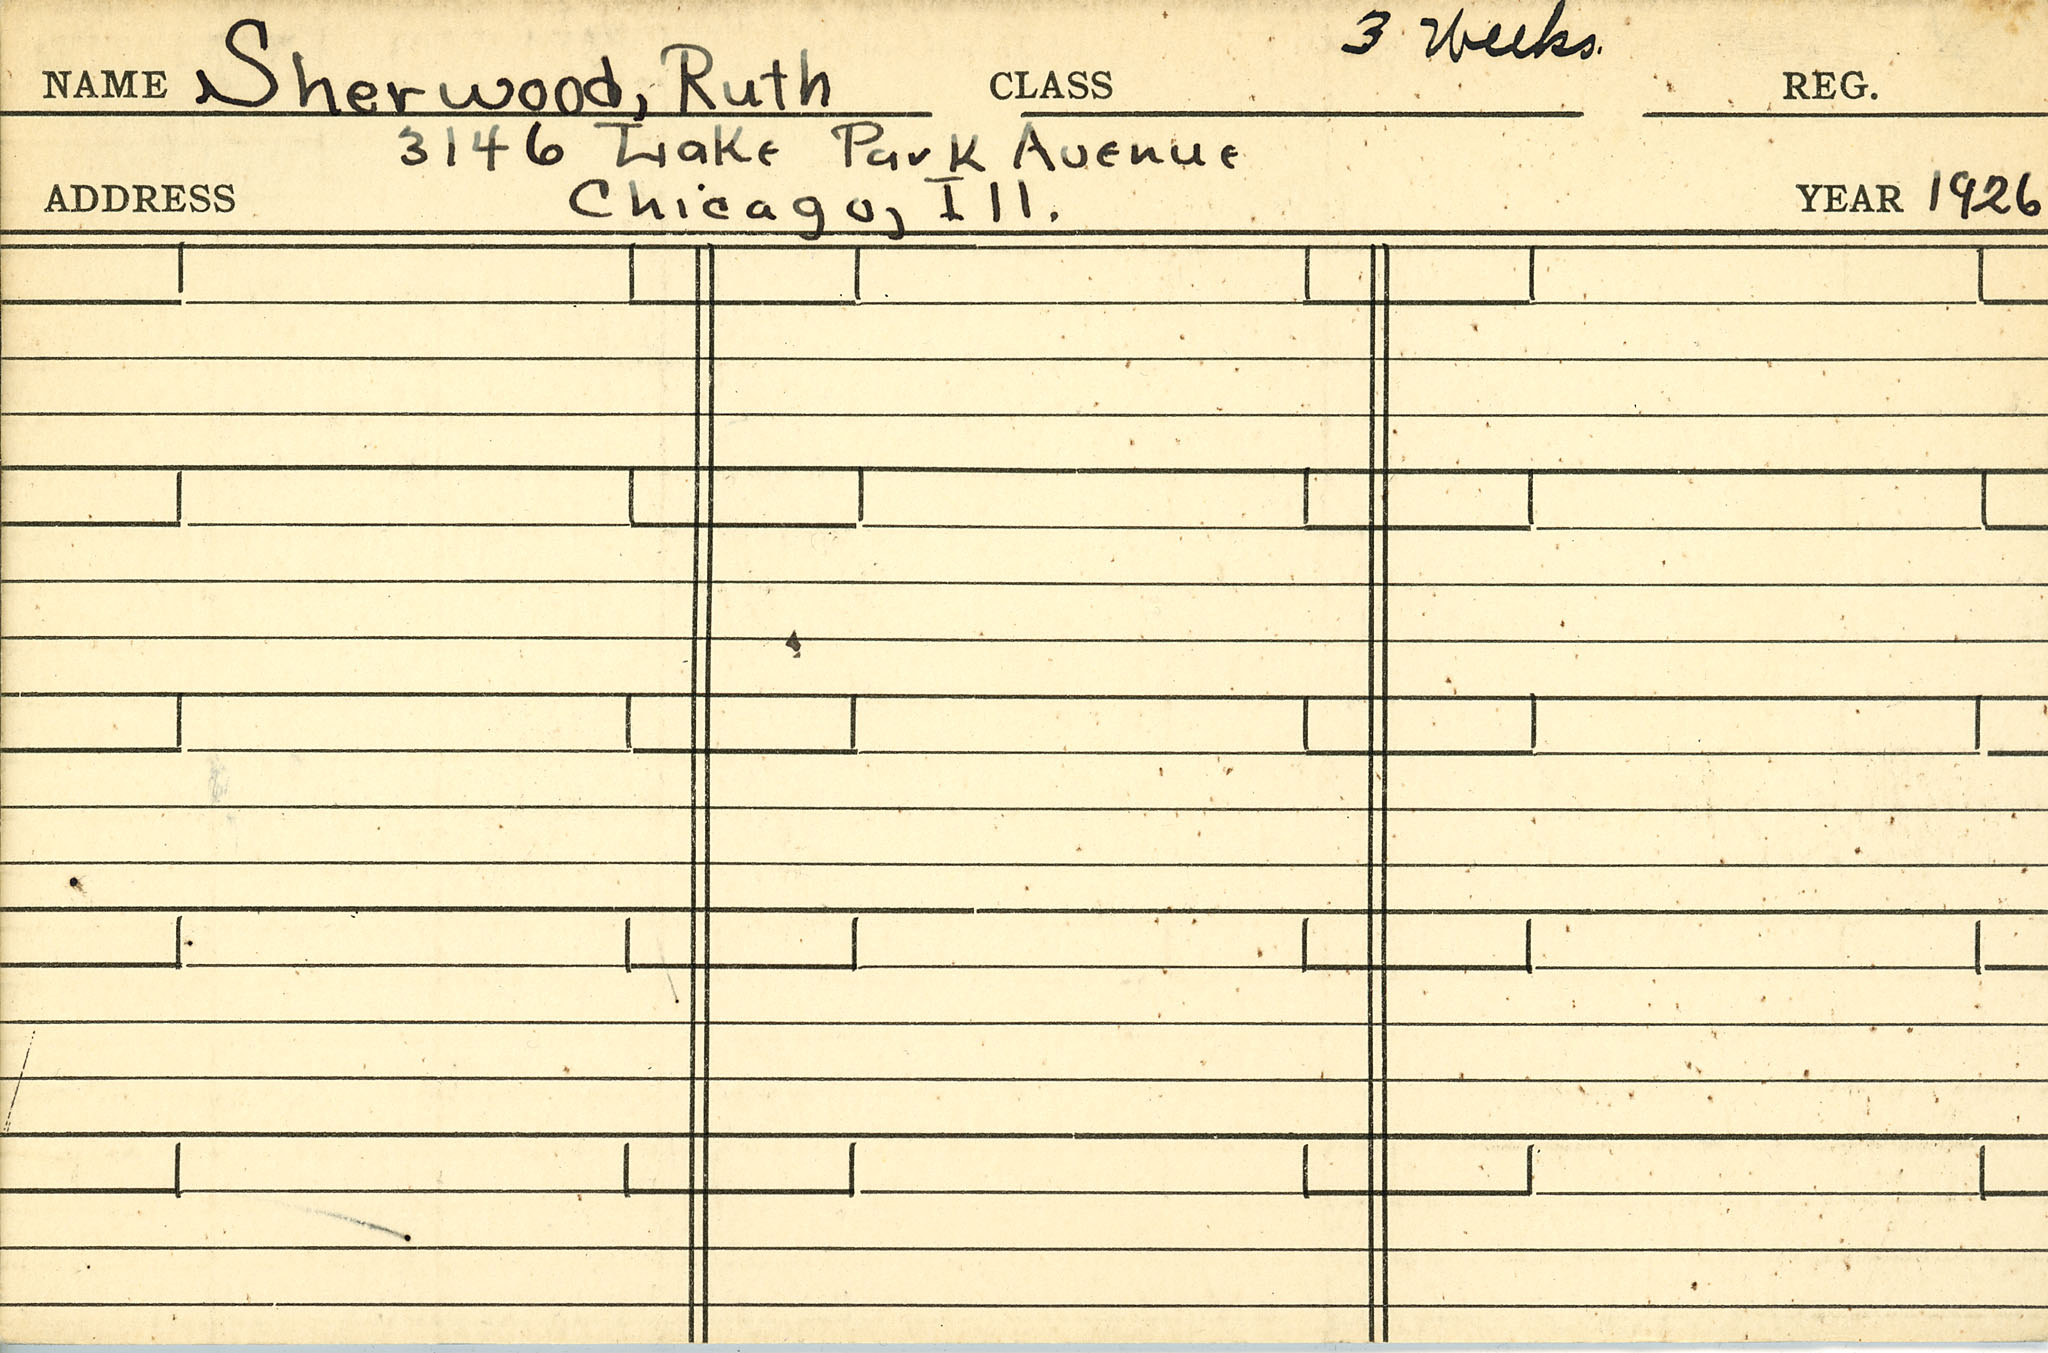 3 Weeks.
NAME Sherwood, Ruth CLASS REG.
3146 Lake Park Avenue
ADDRESS Chicago, Ill. YEAR 1926